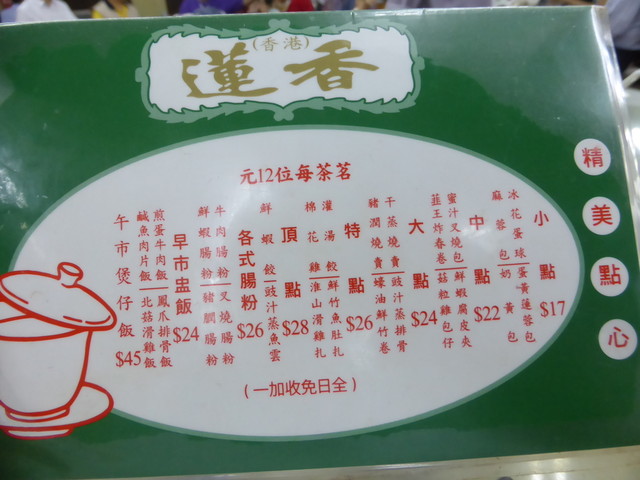 (香港)
蓮香
精美點心
茗茶每位12元
小點 $17
冰花蛋球 蛋黃蓮蓉包
麻蓉包 奶黃包
中點 $22
蜜汁叉燒包 鮮蝦腐皮夾
韮王炸春卷 菇粒雞包仔
大點 $24
干蒸燒賣 豉汁蒸排骨
豬潤燒賣 蠔油鮮竹卷
特點 $26
灌湯餃 鮮竹魚肚扎
棉花雞 淮山滑雞扎
頂點 $28
鮮蝦餃 豉汁蒸魚雲
各式腸粉 $26
牛肉腸粉 叉燒腸粉
鮮蝦腸粉 豬膶腸粉
早市盅飯 $24
煎蛋牛肉飯 鳳爪排骨飯
鹹魚肉片飯 北菇滑雞飯
午市煲仔飯 $45
(全日免收加一)